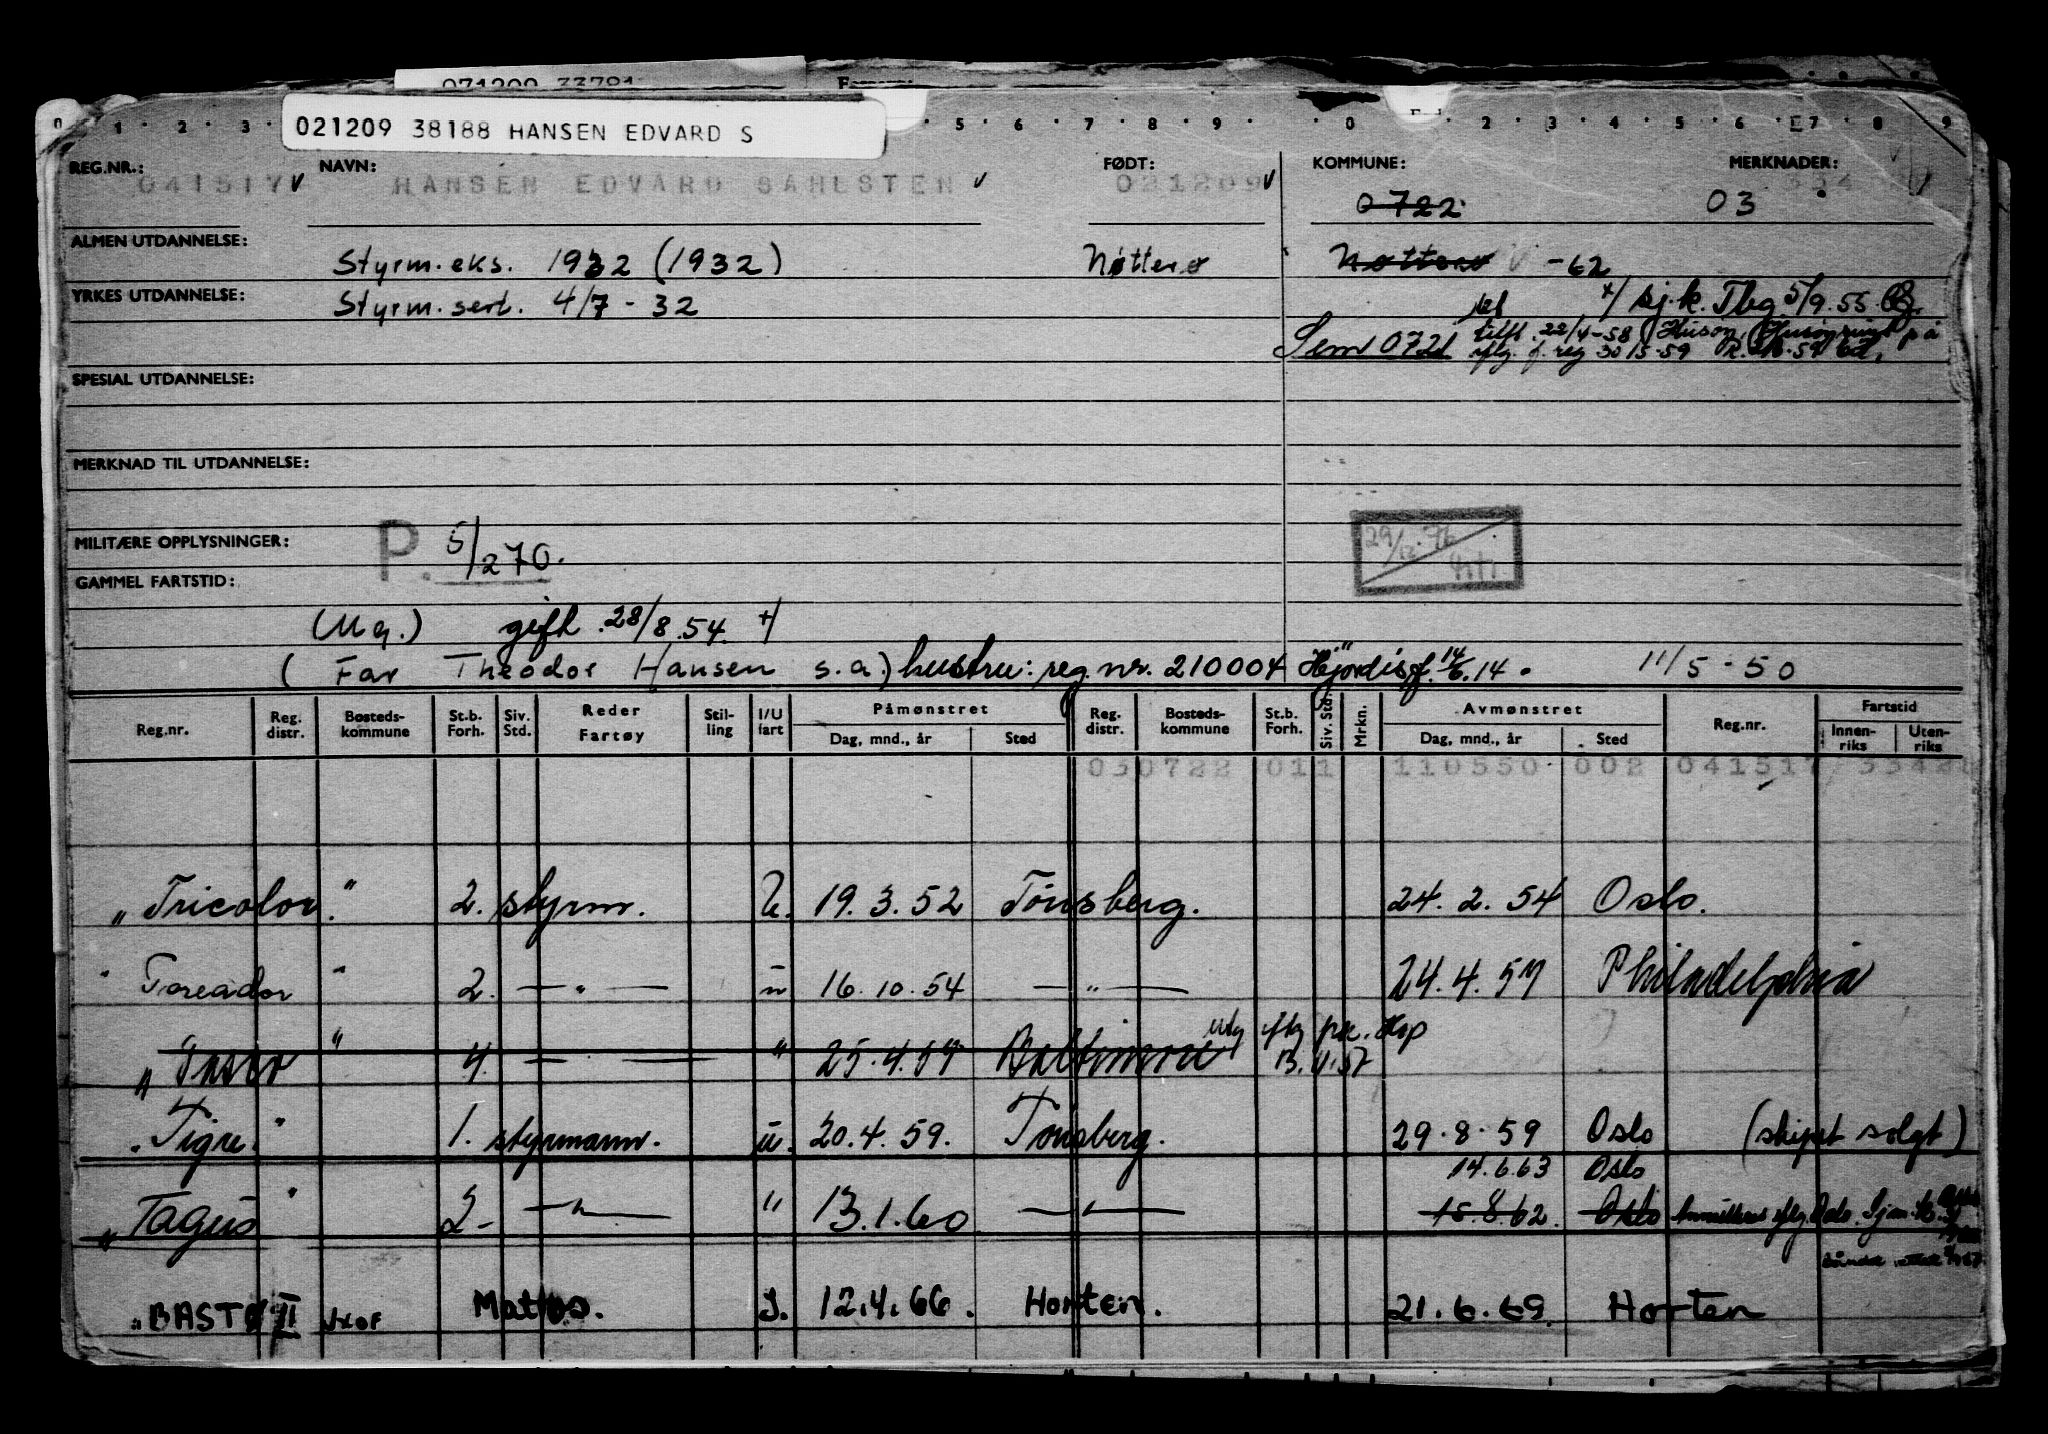 071209 33781
021209 38188 HANSEN EDVARD S
0 1 2 3 5 6 7 8 9 0 2 3 4 5 6 7 8 9
REG.NR.: NAVN: FØDT: KOMMUNE: MERKNADER:
041517 HANSEN EDVARD SAHLSTEN 021209
0722 03
ALMEN UTDANNELSE: Styrm. eks. 1932 (1932) Nøtterø Nøtterø -62
YRKES UTDANNELSE: Styrm. sert. 4/7 - 32 +/ sj.k. Tbg. 5/9.55.
Sem 0721 tilfl. 22/4-58 (Husøy,
eflg. f. reg 30/5-59
SPESIAL UTDANNELSE:
MERKNAD TIL UTDANNELSE:
MILITÆRE OPPLYSNINGER: P. 5/270.
29/12-76
GAMMEL FARTSTID:
(Ug.) gift 28/8.54. +/
(Far Theodor Hansen s.a.) hustru: reg.nr. 210004 Hjørdis, f. 14/6.14. 11/5-50
Reg.nr. Reg. distr. Bosteds-kommune St.b. Forh. Siv. Std. Reder Fartøy Stil-ling I/U fart Påmønstret Dag, mnd., år Sted Reg. distr. Bosteds-kommune St.b. Forh. Siv. Std. Mrkn. Avmønstret Dag, mnd., år Sted Reg.nr. Fartstid Innen-riks Uten-riks
030722 011 110550 002 041517
"Tricolor." 2. styrm. U. 19.3.52 Tønsberg. 24.2.54 Oslo.
"Toreador" 2. —"— u 16.10.54 —"— 24.4.57 Philadelphia
" " 4. — " — " 25.4.57 Baltimore utg eflg pr. Hsp
13.11.57
"Tigre." 1. styrmann. u. 20.4.59. Tønsberg. 29.8.59 Oslo (skipet solgt)
14.6.63 Oslo
"Tagus" 2- —"— " 13.1.60 —"— 15.8.62. Oslo eflg. Oslo. Sjøm.k.
"BASTØ II Matros. I. 12.4.66. Horten. 21.6.69. Horten